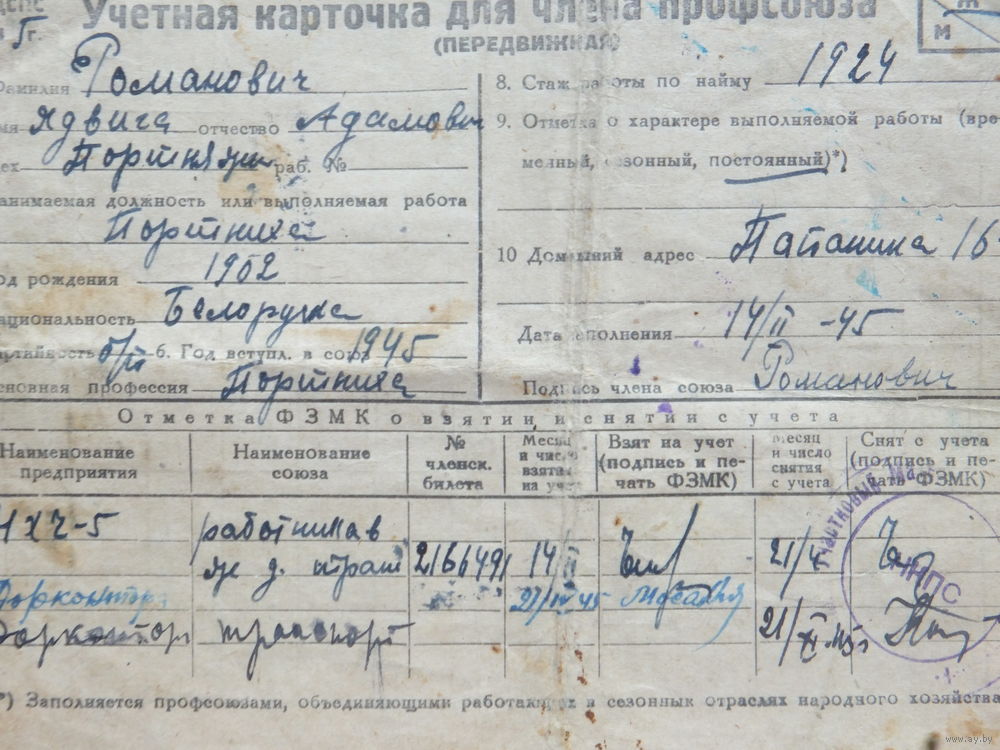 Учетная карточка для члена профсоюза
5г.
(ПЕРЕДВИЖНАЯ)
М
Фамилия Романович
8. Стаж работы по найму 1924
имя Ядвига отчество Адамович
9. Отметка о характере выполняемой работы (вре-
раб. №
менный, сезонный, постоянный)*)
занимаемая должность или выполняемая работа
Портниха
10 Домашний адрес Папанина 16
Год рождения 1902
национальность Белоруска
Дата заполнения 14/II -45
партийность б/п 6. Год вступл. в союз 1945
основная профессия Портниха
Подпись члена союза Романович
Отметка ФЗМК о взятии и снятии с учета
Наименование предприятия
Наименование союза
№ членск. билета
Месяц и число взятия на учет
Взят на учет (подпись и печать ФЗМК)
Месяц и число снятия с учета
Снят с учета (подпись и печать ФЗМК)
НХЧ-5 работников
же д. трансп 2166491 14/II 21/4
Дорконтора 27/IV 45
Дорконтор транспорт 21/XI-45г
НКПС
*) Заполняется профсоюзами, объединяющими работающих в сезонных отраслях народного хозяйства
www.ay.by